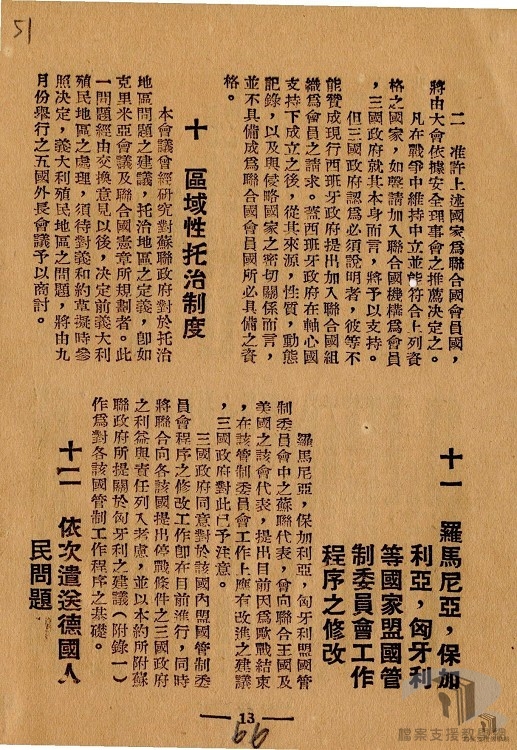 51
二　准許上述國家爲聯合國會員國，
將由大會依據安全理事會之推薦決定之。
凡在戰爭中維持中立並能符合上列資
格之國家，如聲請加入聯合國機構爲會員
，三國政府就其本身而言，將予以支持。
但三國政府認爲必須說明者，彼等不
能贊成現行西班牙政府提出加入聯合國組
織爲會員之請求。蓋西班牙政府在軸心國
支持下成立之後，從其來源，性質，動態
記錄，以及與侵略國家之密切關係而言，
並不具備成爲聯合國會員國所必具備之資
格。
十　區域性托治制度
本會議曾經研究對蘇聯政府對於托治
地區問題之建議，托治地區之定義，卽如
克里米亞會議及聯合國憲章所規劃者。此
一問題經由交換意見以後，決定前義大利
殖民地區之處理，須待對義和約草擬時參
照決定，義大利殖民地區之問題，將由九
月份舉行之五國外長會議予以商討。
十一　羅馬尼亞，保加
利亞，匈牙利
等國家盟國管
制委員會工作
程序之修改
羅馬尼亞，保加利亞，匈牙利盟國管
制委員會中之蘇聯代表，曾向聯合王國及
美國之該會代表，提出目前因爲歐戰結束
，在該管制委員會工作上應有改進之建議
，三國政府對此已予注意。
三國政府同意對於該國內盟國管制委
員會程序之修改工作卽在目前進行，同時
將聯合向各該國提出停戰條件之三國政府
之利益與責任列入考慮，並以本約所附蘇
聯政府所提關於匈牙利之建議（附錄一）
作爲對各該國管制工作程序之基礎。
十二　依次遣送德國人
民問題
13
66
檔案支援教學網